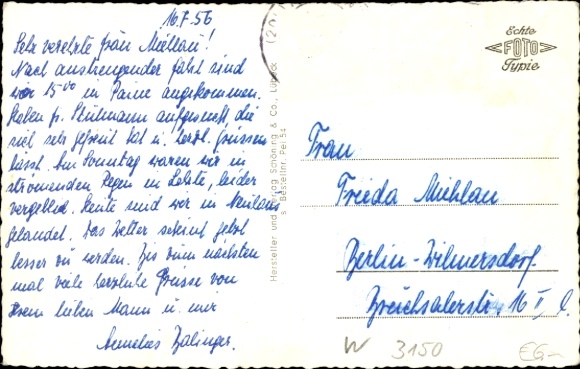 16.7.56
Sehr verehrte Frau Miehlau!
Nach anstrengender Fahrt sind
wir 15⁰⁰ in Peine angekommen.
Haben fr. Stuhmann aufgesucht, die
sich sehr gefreut hat u. herzl. Grüssen
lässt. Am Sonntag waren wir in
strömenden Regen in Lehrte, leider
vergeblich. Heute sind wir in
gelandet. Das Wetter scheint jetzt
besser zu werden. Bis zum nächsten
mal viele herzliche Grüsse von
Ihrem lieben Mann u. mir
Annelies Balinger.
Hersteller und Verlag Schöning & Co., Lübeck
Bestellnr. Pei 54
Echte
FOTO
Typie
Frau
Frieda Miehlau
Berlin-Wilmersdorf
16 II l.
W 3150 EG-